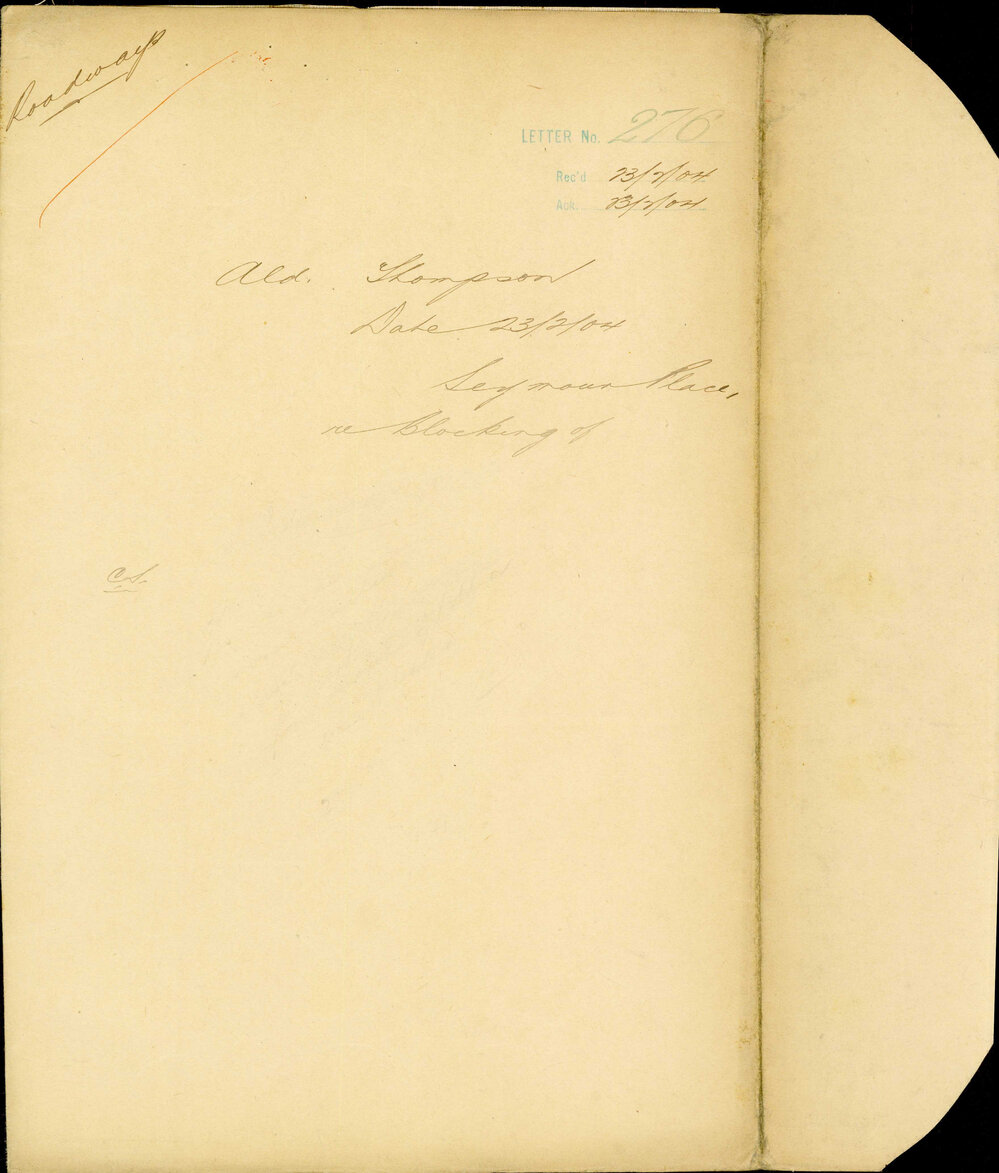 Roadways
LETTER No. 276
Rec'd 23/2/04
Ack. 23/2/04
Ald. Thompson
Date 23/2/04
Seymour Place,
re Blocking of